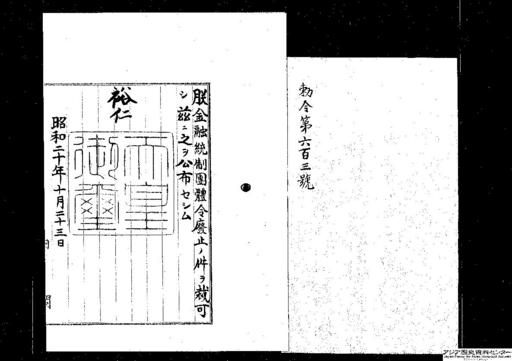 勅令第六百三號
朕金融統制團體令廢止ノ件ヲ裁可
シ茲ニ之ヲ公布セシム
裕仁
天皇御璽
昭和二十年十月二十三日
アジア歴史資料センター